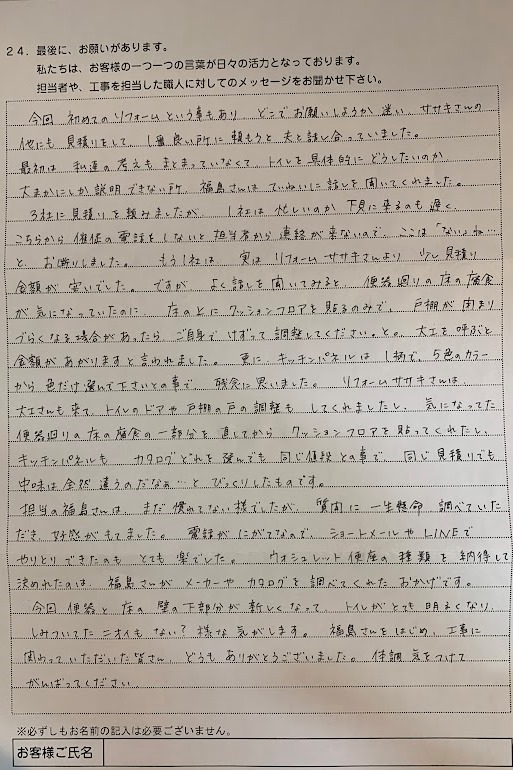 24. 最後に、お願いがあります。
私たちは、お客様の一つ一つの言葉が日々の活力となっております。
担当者や、工事を担当した職人に対してのメッセージをお聞かせ下さい。
今回 初めてのリフォームという事もあり、どこでお願いしようか迷い、ササキさんの
他にも見積りをして、1番良い所に頼もうと夫と話し合っていました。
最初は 私達の考えもまとまっていなくて、トイレを具体的にどうしたいのか
大まかにしか説明できない所、福島さんは ていねいに話しを聞いてくれました。
3社に見積りを頼みましたが、1社は 忙しいのか 下見に来るのも遅く、
こちらから 催促の電話をしないと担当者から連絡が来ないので、ここは「ない」ね…
と、お断りしました。もう1社は、実は リフォームササキさんより 少し見積り
金額が安いでした。ですが、よく話しを聞いてみると、便器廻りの床の腐食
が気になっていたのに、床の上にクッションフロアを貼るのみで、戸棚が閉まり
づらくなる場合があったら、ご自身でけずって調整してください。と。大工を呼ぶと
金額があがりますと言われました。更に、キッチンパネルは1柄で、5色のカラー
から色だけ選んで下さいとの事で、残念に思いました。リフォームササキさんは、
大工さんも来て、トイレのドアや戸棚の戸の調整も してくれましたし、気になってた
便器廻りの床の腐食の一部分を直してから クッションフロアを貼ってくれたし、
キッチンパネルも カタログどれを選んでも同じ値段との事で、同じ見積りでも
中味は全然違うのだなぁ…と びっくりしたものです。
担当の福島さんは、まだ慣れてない様でしたが、質問に一生懸命調べていた
だき、好感がもてました。電話がにがてなので、ショートメールやLINEで
やりとりできたのも とても楽でした。ウォシュレット便座の種類を納得して
決めれたのは、福島さんが メーカーや カタログを調べてくれた おかげです。
今回、便器と床の壁の下部分が新しくなって、トイレがとても明るくなり、
しみついてたニオイもない?様な気がします。福島さんをはじめ、工事に
関わっていただいた皆さん、どうもありがとうございました。体調 気をつけて
がんばってください。
※必ずしもお名前の記入は必要ございません。
お客様ご氏名